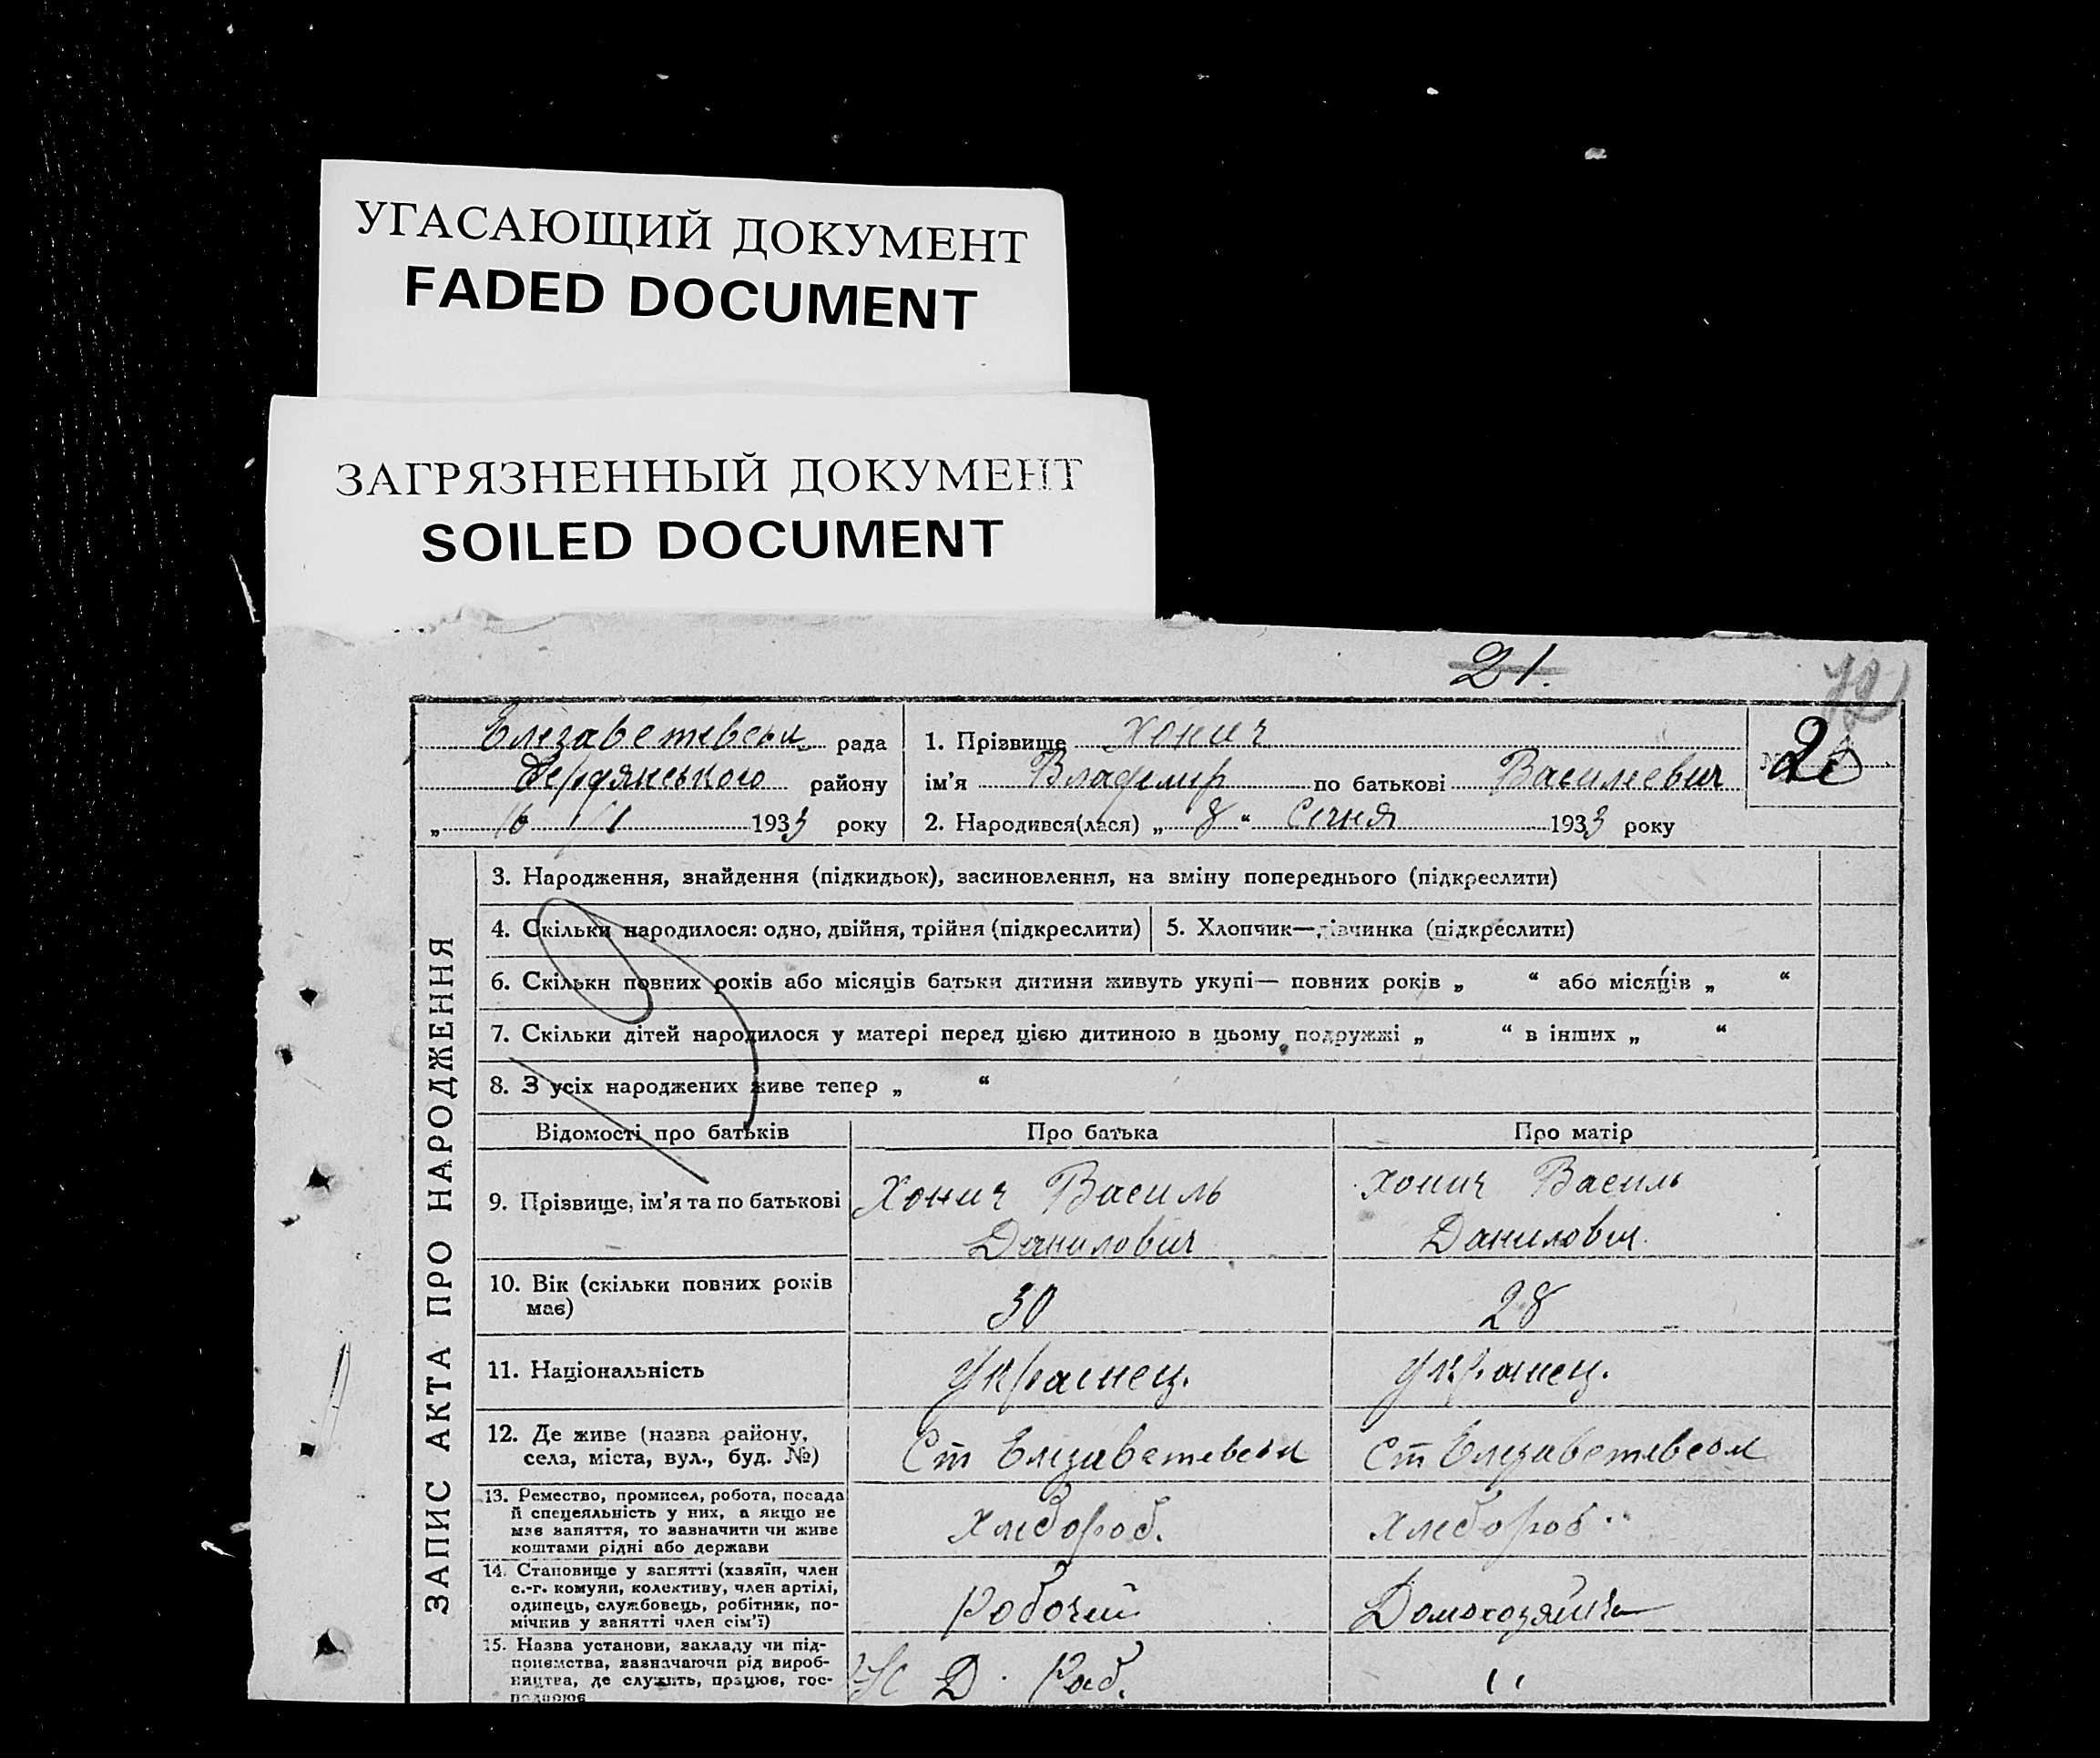 УГАСАЮЩИЙ ДОКУМЕНТ
FADED DOCUMENT
ЗАГРЯЗНЕННЫЙ ДОКУМЕНТ
SOILED DOCUMENT
21.
Елезаветевськ. рада
Бердянського району
„ 16 / 1 1933 року
1. Прізвище Хонич
ім'я Владимир по батькові Василевич
2. Народився(лася) „ 8 “ Січня 1933 року
№ 20
ЗАПИС АКТА ПРО НАРОДЖЕННЯ
3. Народження, знайдення (підкидьок), засиновлення, на зміну попереднього (підкреслити)
4. Скільки народилося: одно, двійня, трійня (підкреслити)
5. Хлопчик—дівчинка (підкреслити)
6. Скільки повних років або місяців батьки дитини живуть укупі— повних років „ “ або місяців „ “
7. Скільки дітей народилося у матері перед цією дитиною в цьому подружжі „ “ в інших „ “
8. З усіх народжених живе тепер „ “
Відомості про батьків Про батька Про матір
9. Прізвище, ім'я та по батькові
Хонич Василь
Данилович
Хонич Василь
Данилович
10. Вік (скільки повних років
має)
30
28
11. Національність
Украинец.
Украинец.
12. Де живе (назва району,
села, міста, вул., буд. №)
Ст
Ст
13. Ремество, промисел, робота, посада
й спеціяльність у них, а якщо не
має заняття, то зазначити чи живе
коштами рідні або держави
Хлебороб.
Хлебороб
14. Становище у занятті (хазяїн, член
с.-г. комуни, колективу, член артілі,
одинець, службовець, робітник, по-
мічник у занятті член сім'ї)
Робочий
Домохозяйка
15. Назва установи, закладу чи під-
приємства, зазначаючи рід вироб-
ництва, де служить, працює, гос-
подарює
Д. Раб.
"